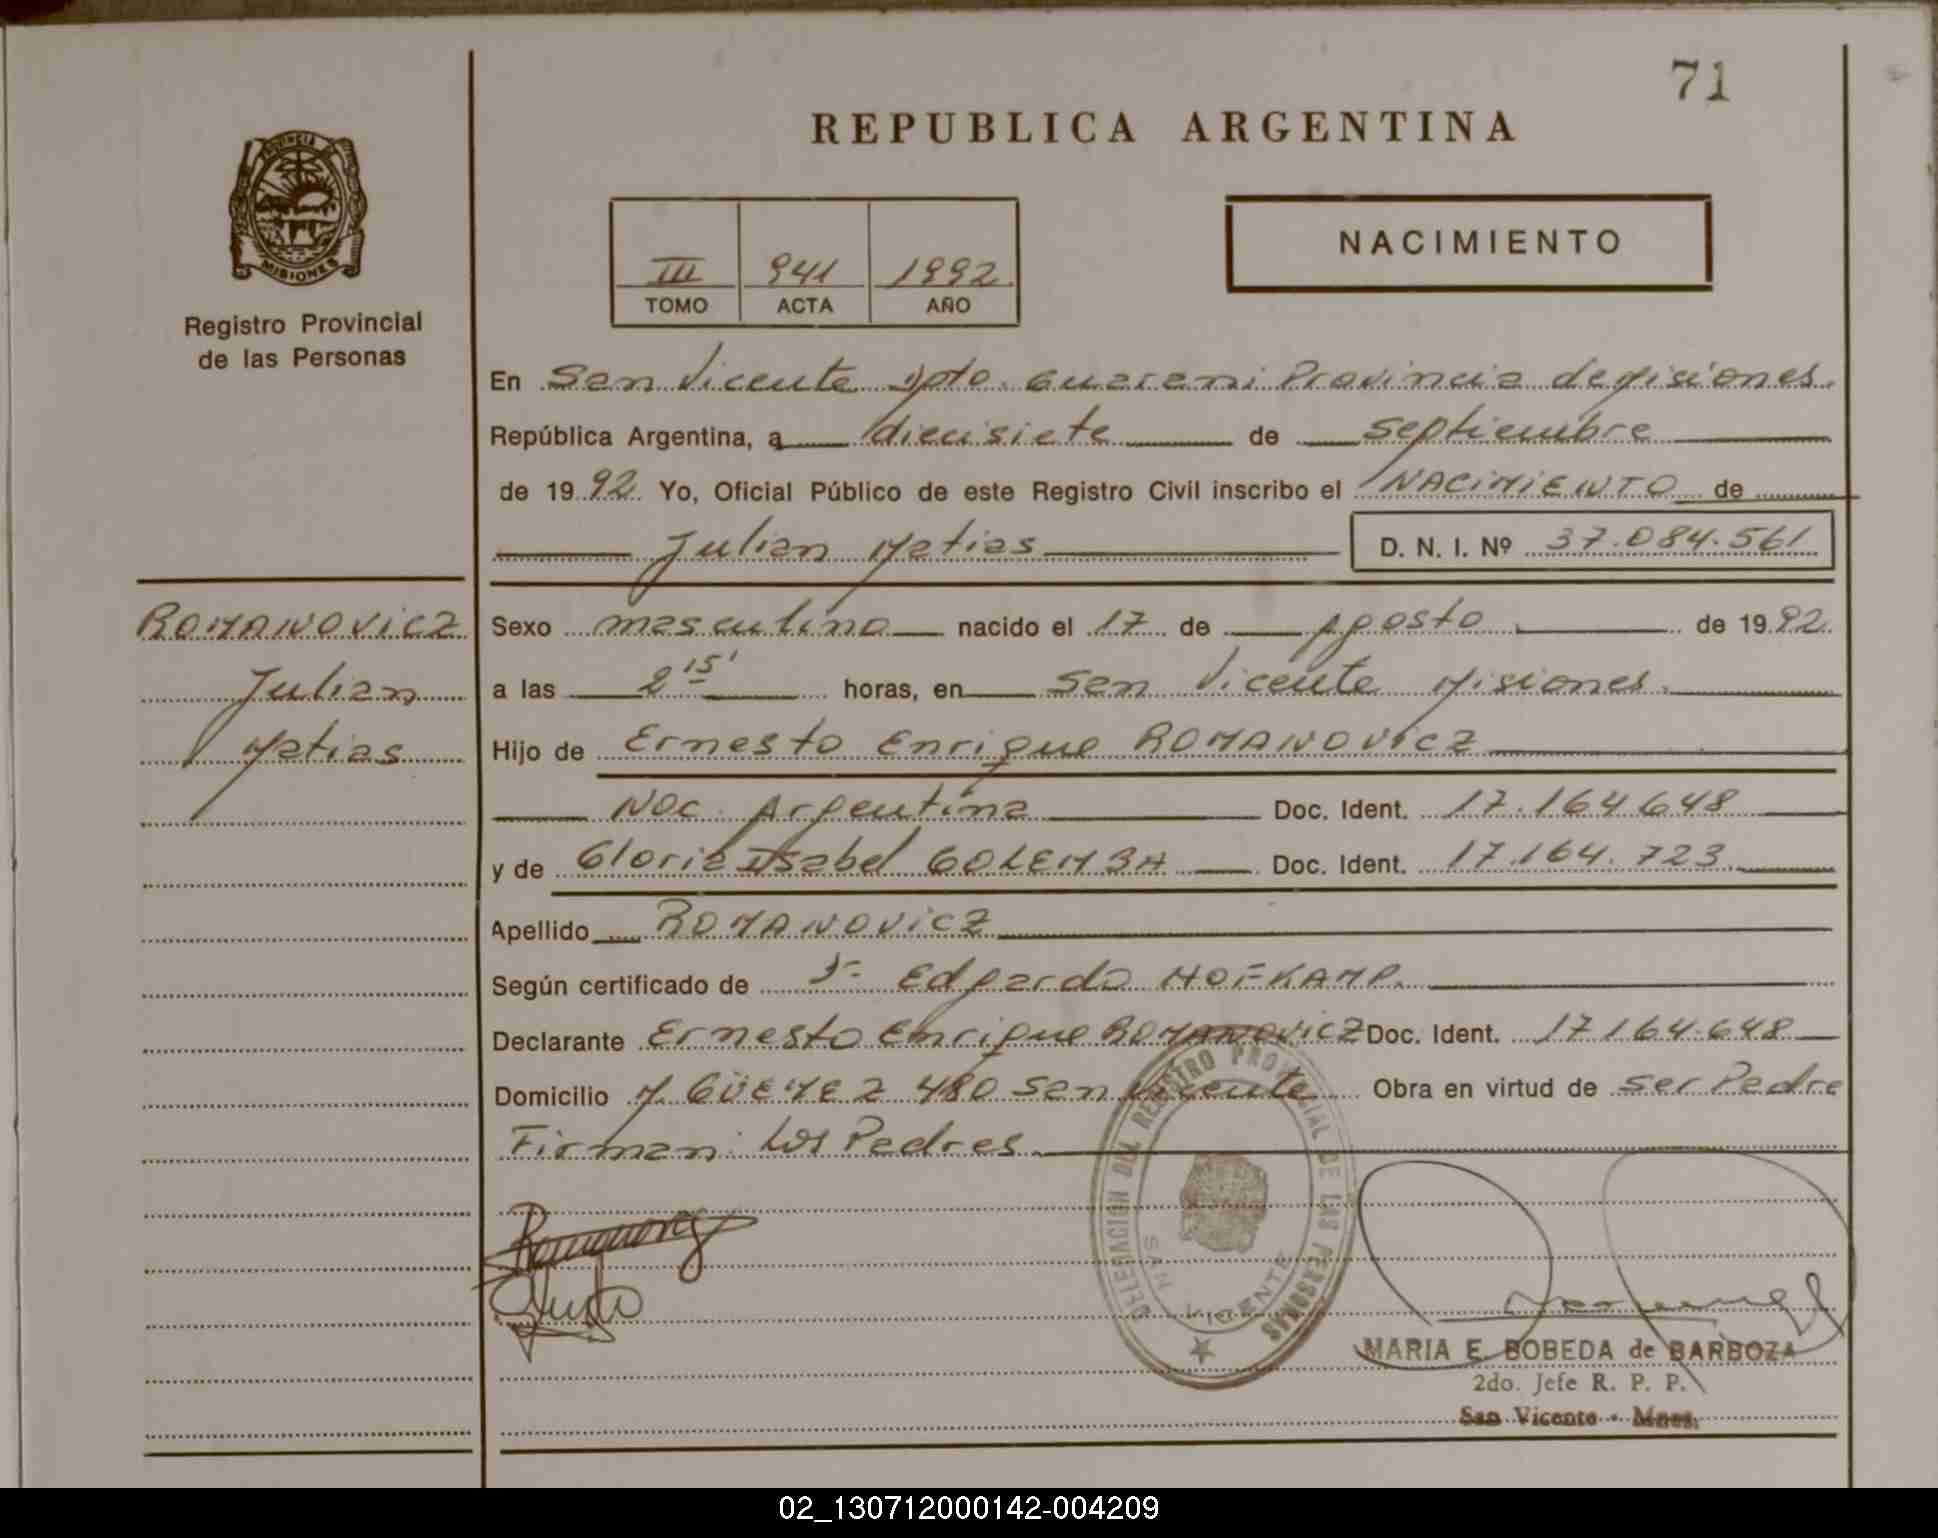 71
REPUBLICA ARGENTINA
PROVINCIA DE
MISIONES
Registro Provincial
de las Personas
III 941 1992
TOMO ACTA AÑO
NACIMIENTO
En San Vicente Dpto. Guarani Provincia de Misiones.
República Argentina, a diecisiete de septiembre
de 1992 Yo, Oficial Público de este Registro Civil inscribo el NACIMIENTO de
Julian Matias D. N. I. Nº 37.084.561
ROMANOVICZ
Julian
Matias
Sexo masculino nacido el 17 de Agosto de 1992
a las 2 15' horas, en San Vicente Misiones.
Hijo de Ernesto Enrique ROMANOVICZ
Nac. Argentina Doc. Ident. 17.164.648
y de Gloria Isabel GOLEMBA Doc. Ident. 17.164.723
Apellido ROMANOVICZ
Según certificado de Edgardo HOFKAMP.
Declarante Ernesto Enrique ROMANOVICZ Doc. Ident. 17.164.648
Domicilio M. GÜEMEZ 480 San Vicente Obra en virtud de ser Padre
Firman: Los Padres
DELEGACION DEL REGISTRO PROVINCIAL DE LAS PERSONAS
SAN VICENTE
MARIA E. BOBEDA de BARBOZA
2do. Jefe R. P. P.
San Vicente - Mnes.
02_130712000142-004209